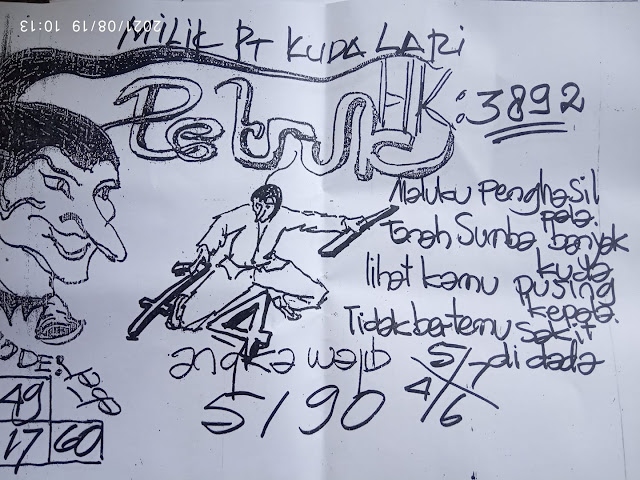 2021/08/19 10:13
MILIK PT KUDA LARI
Petruk HK: 3892
Maluku penghasil
pala.
Tanah Sumba banyak
kuda
lihat kamu pusing
kepala.
Tidak bertemu sakit
di dada
4
angka wajib
5190
5/7
4/6
KODE:
49
17 60